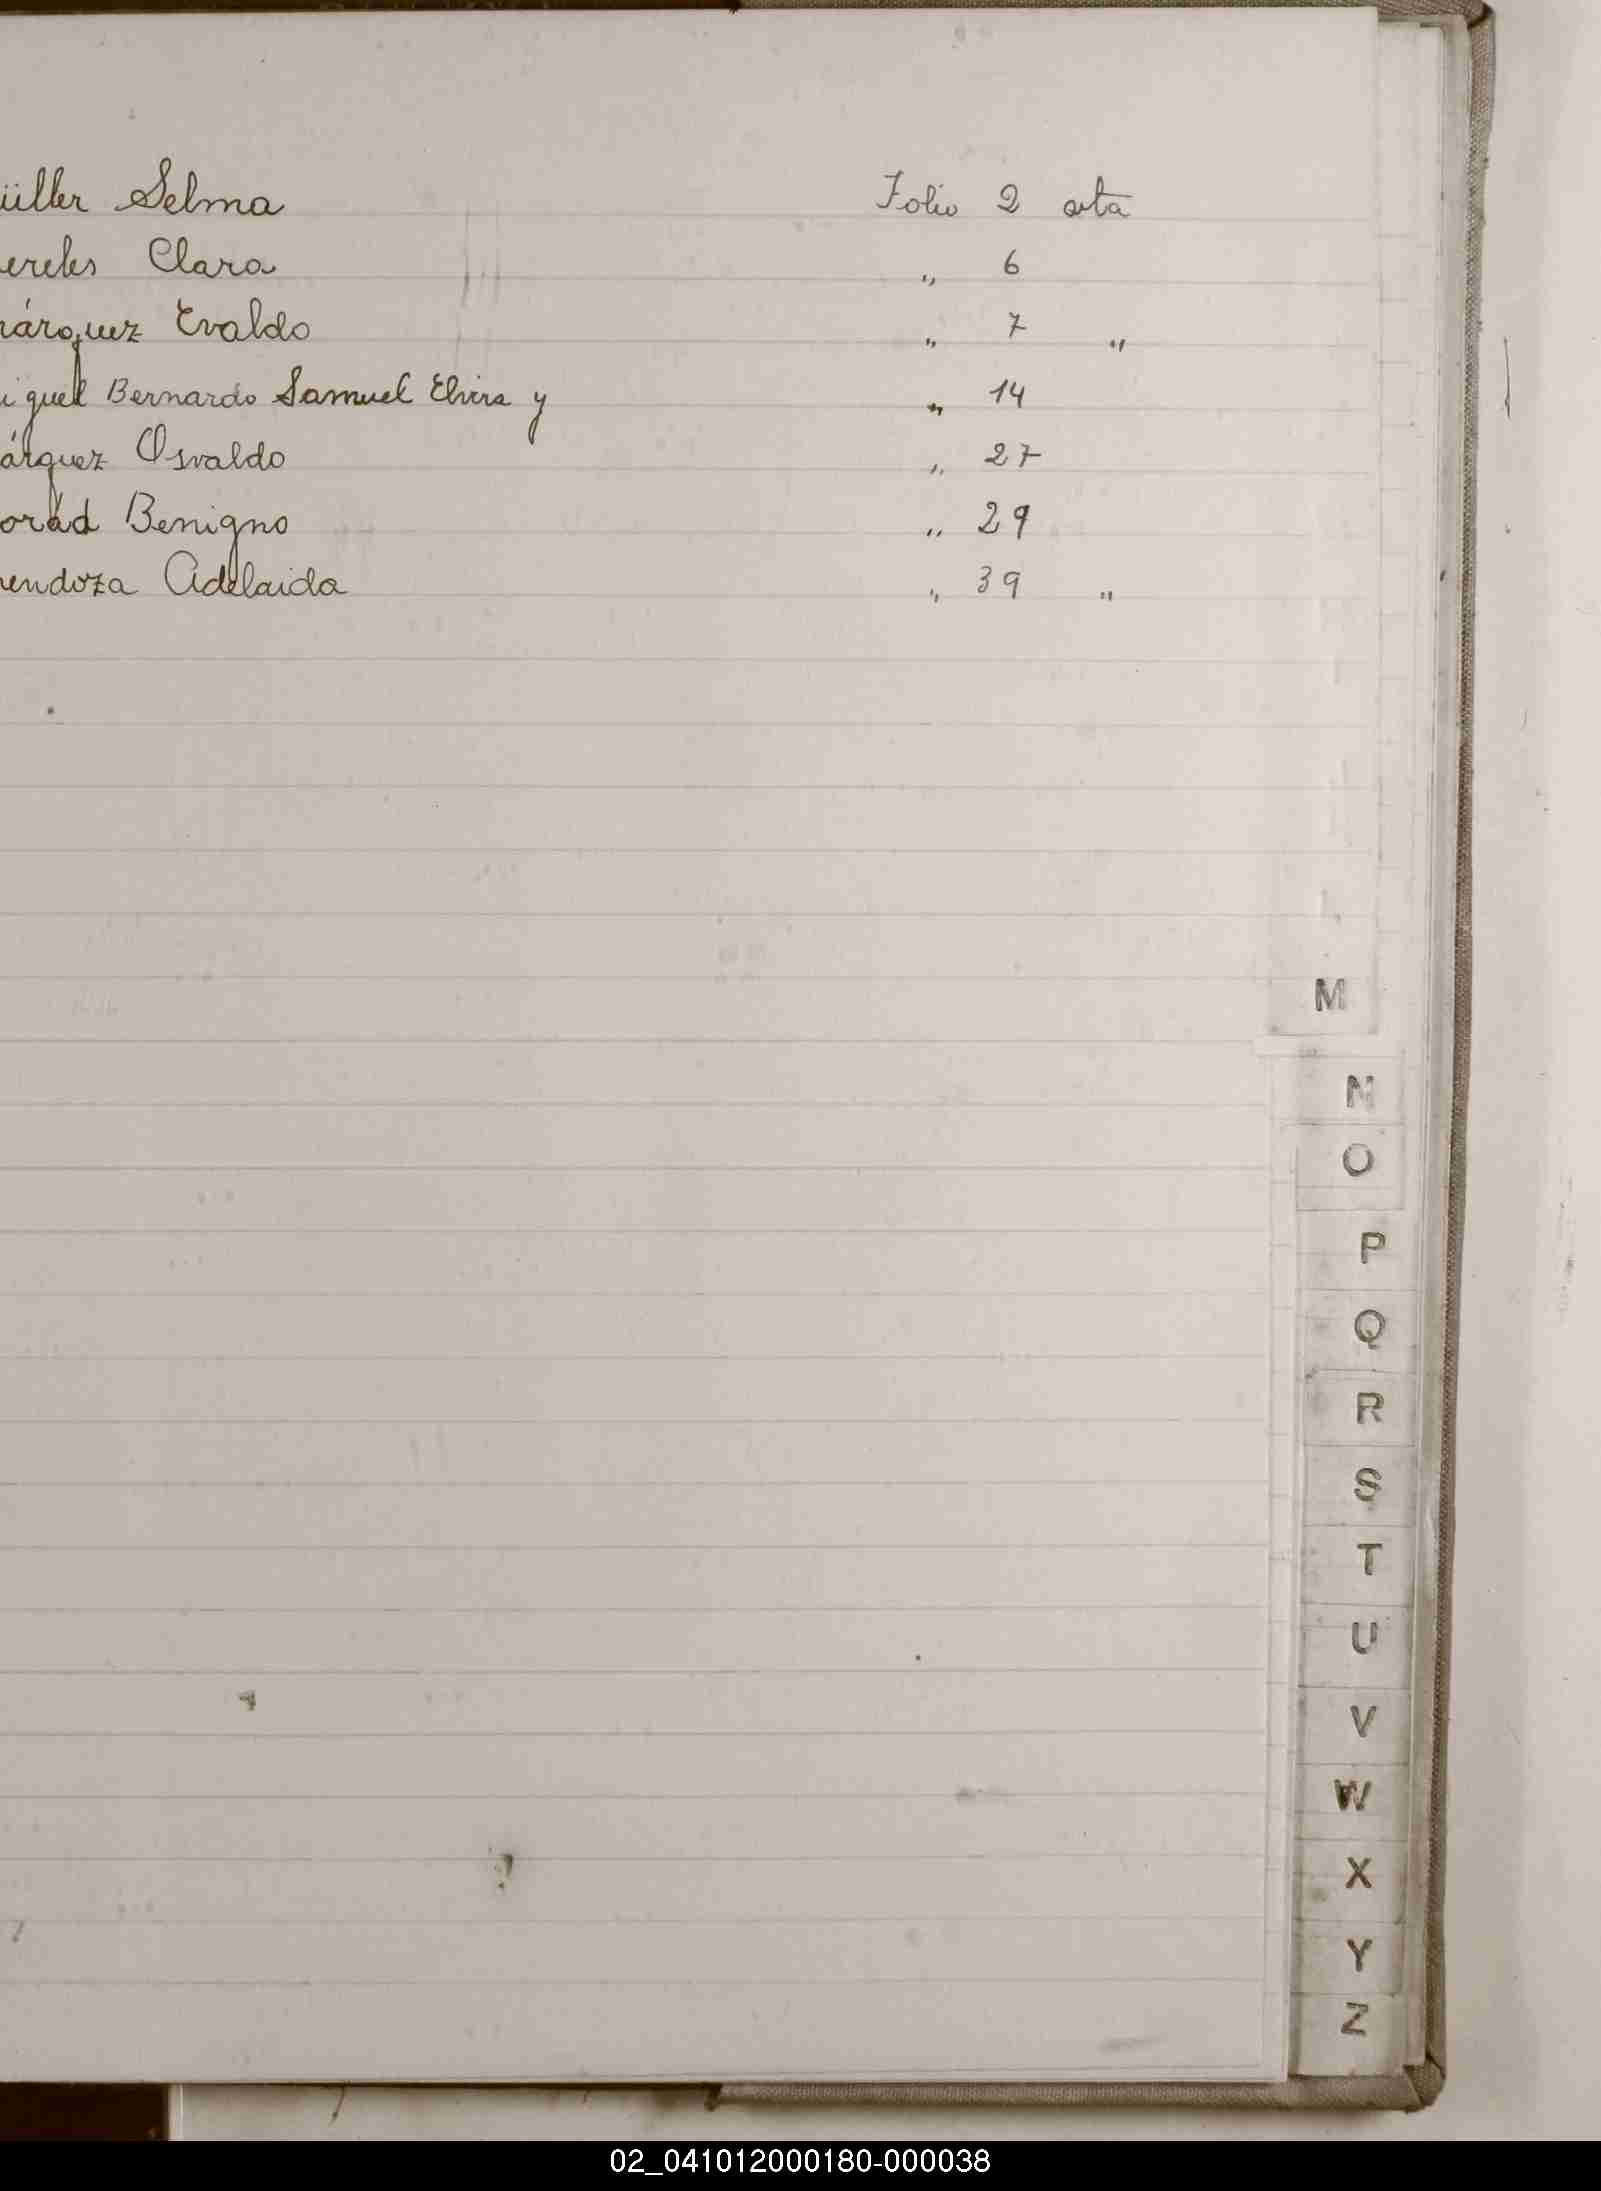 üller Selma Folio 2 vta
ereles Clara " 6
márquez Evaldo " 7 "
iguel Bernardo Samuel Elvira y " 14
árquez Osvaldo " 27
orád Benigno " 29
mendoza Adelaida " 39 "
M
N
O
P
Q
R
S
T
U
V
W
X
Y
Z
02_041012000180-000038